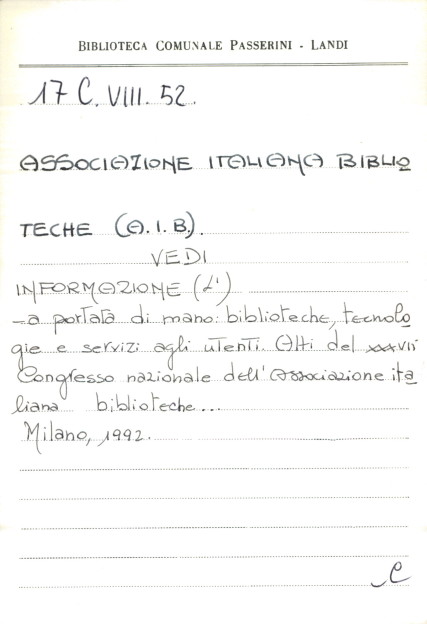 BIBLIOTECA COMUNALE PASSERINI - LANDI
17 C. VIII. 52.
ASSOCIAZIONE ITALIANA BIBLIO
TECHE (A.I.B.).
VEDI
INFORMAZIONE (L')
-a portata di mano: biblioteche, tecnolo
gie e servizi agli utenti. Atti del XXXVII
Congresso nazionale dell'Associazione ita
liana biblioteche...
Milano, 1992.
C